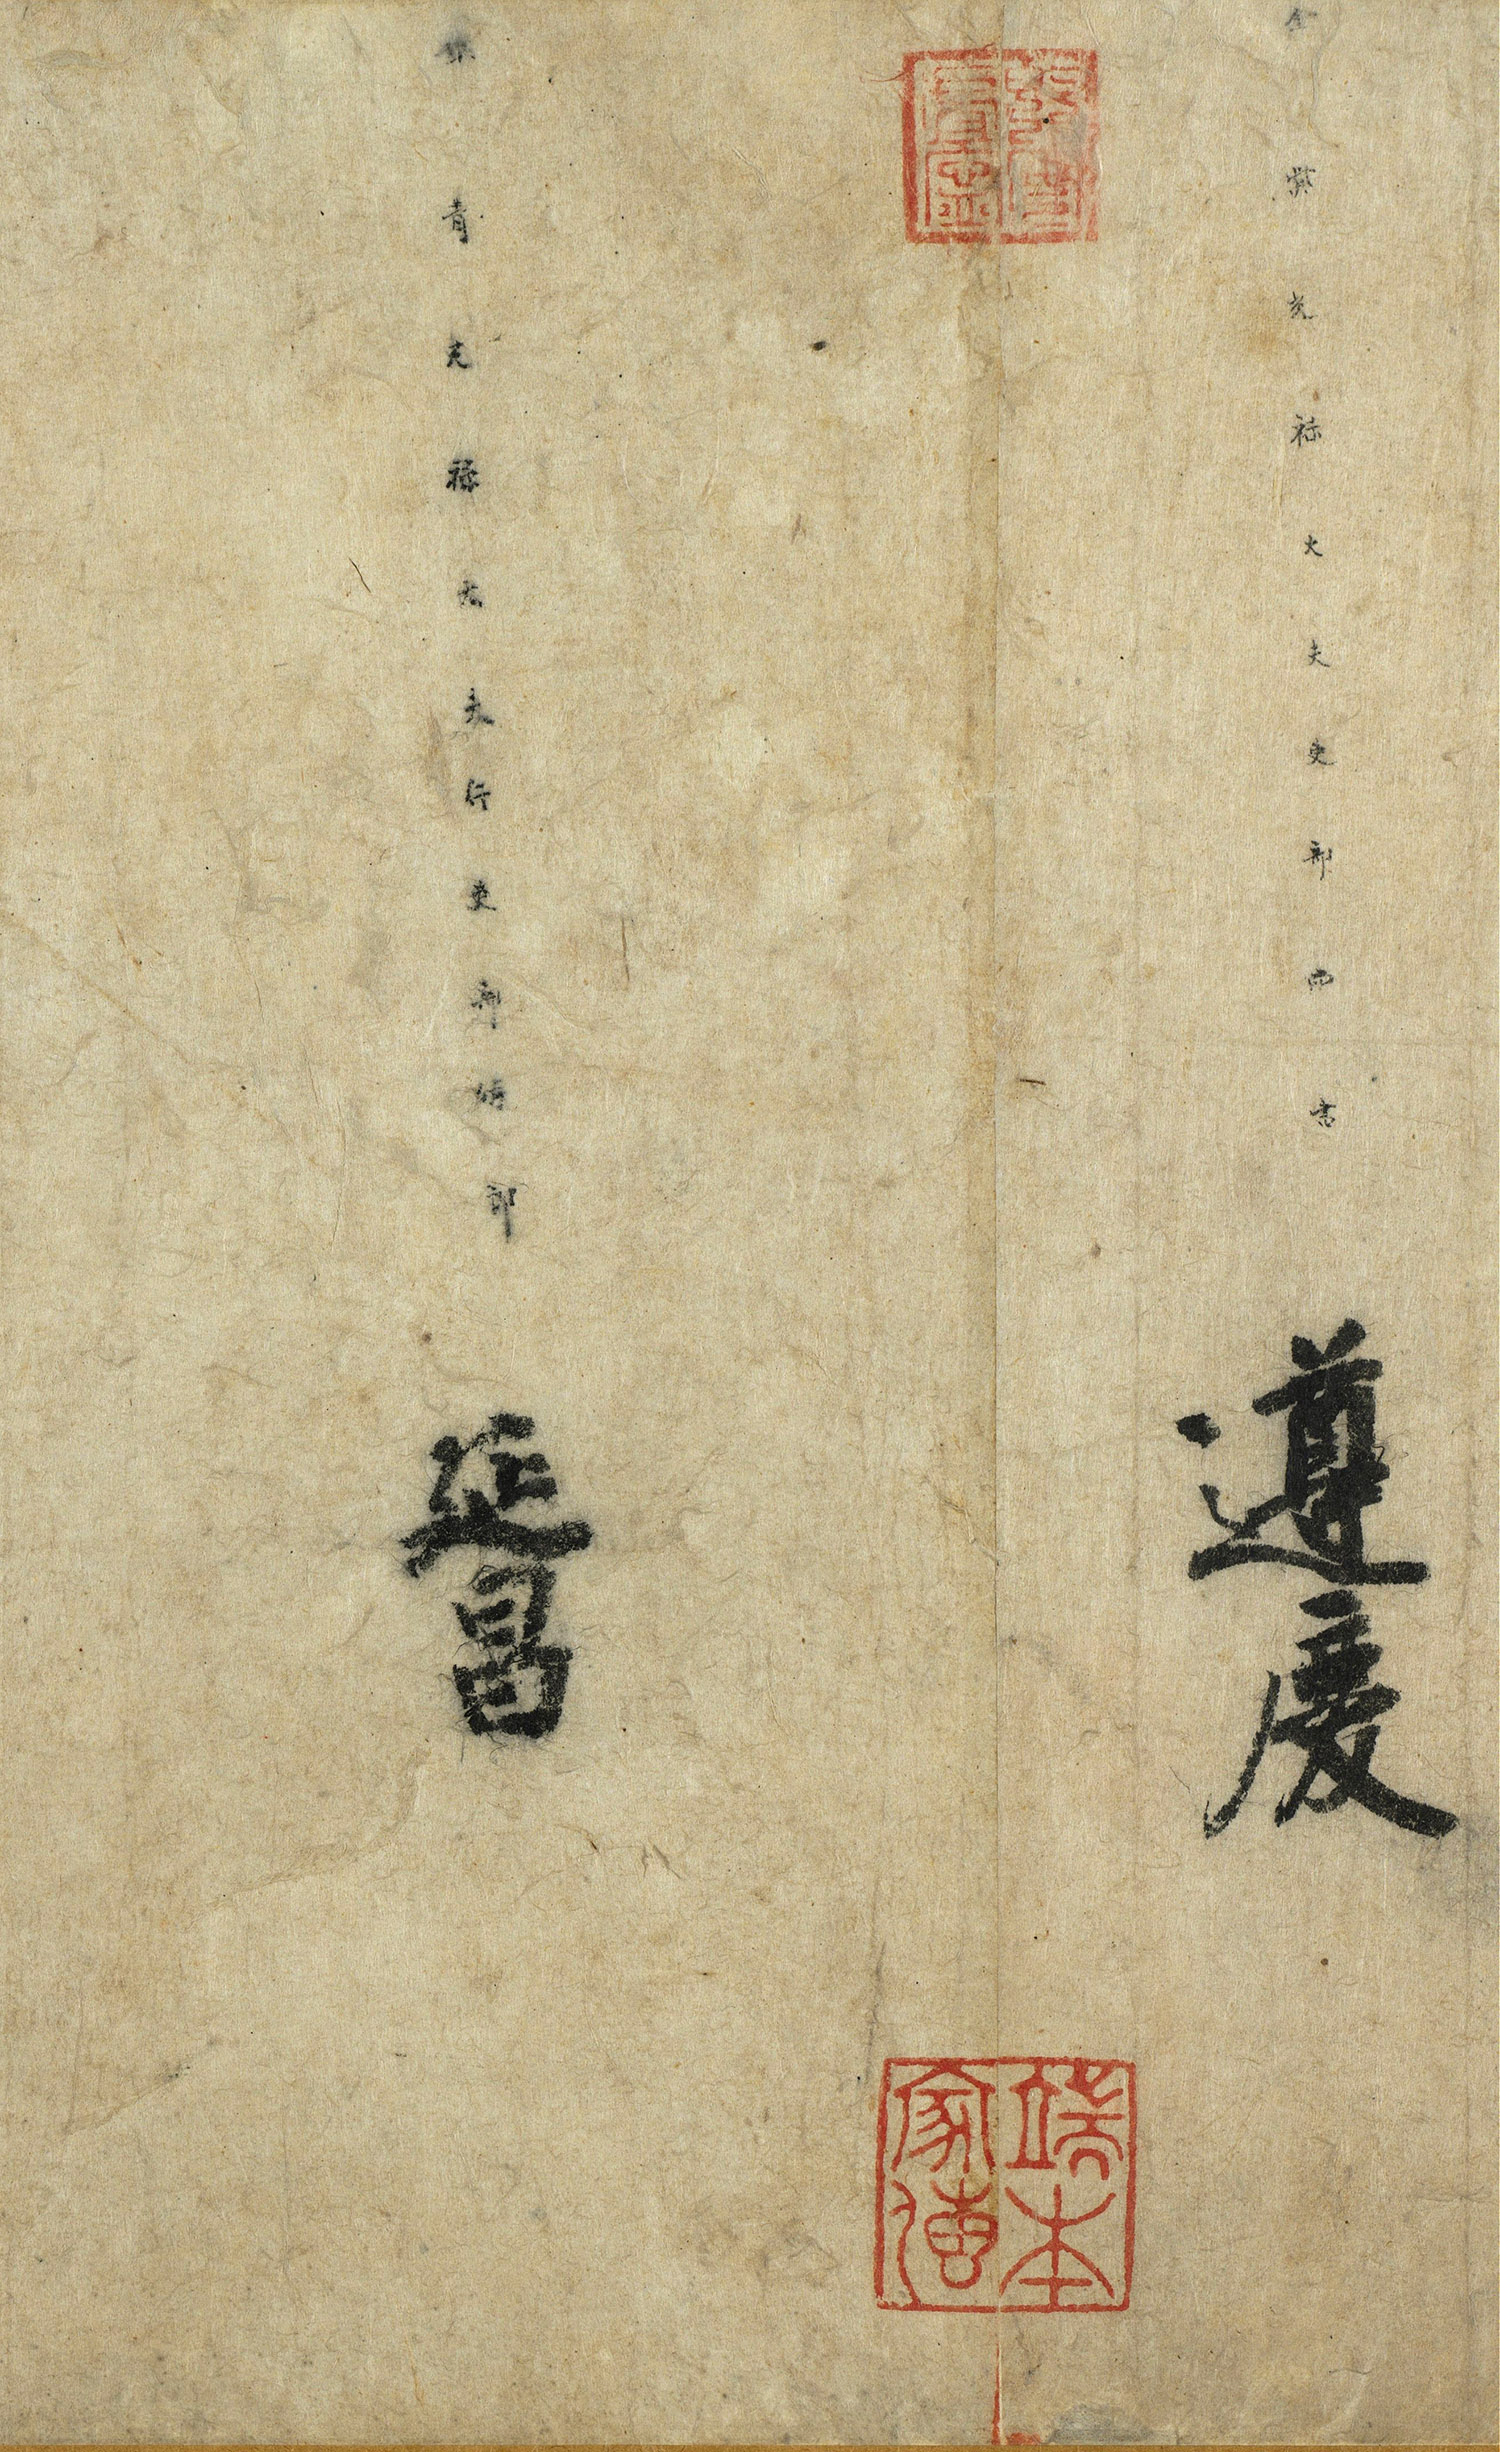 金紫光祿大夫吏部尚書
遵慶
端本
家傳
銀青光祿大夫行吏部侍郎
延昌